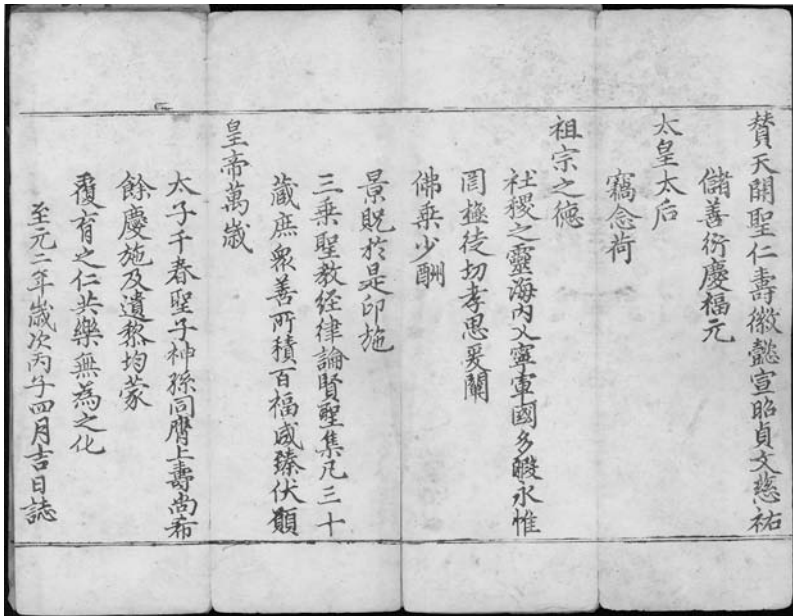 賛天開聖仁壽徽懿宣昭貞文慈祐
儲善衍慶福元
太皇太后
竊念荷
祖宗之德
社稷之靈海内乂寧軍國多暇永惟
罔極徒切孝思爰闡
佛乗少酬
景貺於是印施
三乗聖教経律論賢聖集凡三十
蔵庶衆善所積百福咸臻伏願
皇帝萬歳
太子千春聖子神孫同膺上壽尚希
餘慶施及遺黎均蒙
覆育之仁共樂無為之化
至元二年歳次丙子四月吉日誌